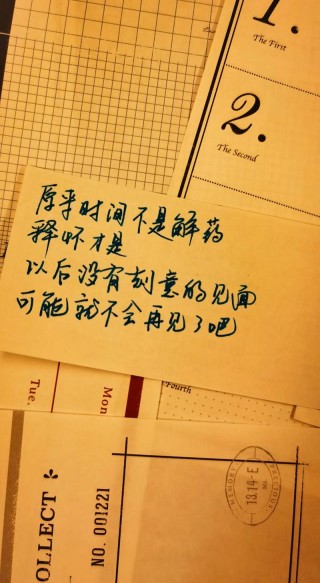 1.
The First
2.
The Second
原来时间不是解药
释怀才是
以后没有刻意的见面
可能就不会再见了吧
Fourth
Tue.
Mon
OLLECT
NO. 001221
MEMORY
13.14-E
PRECIOUS